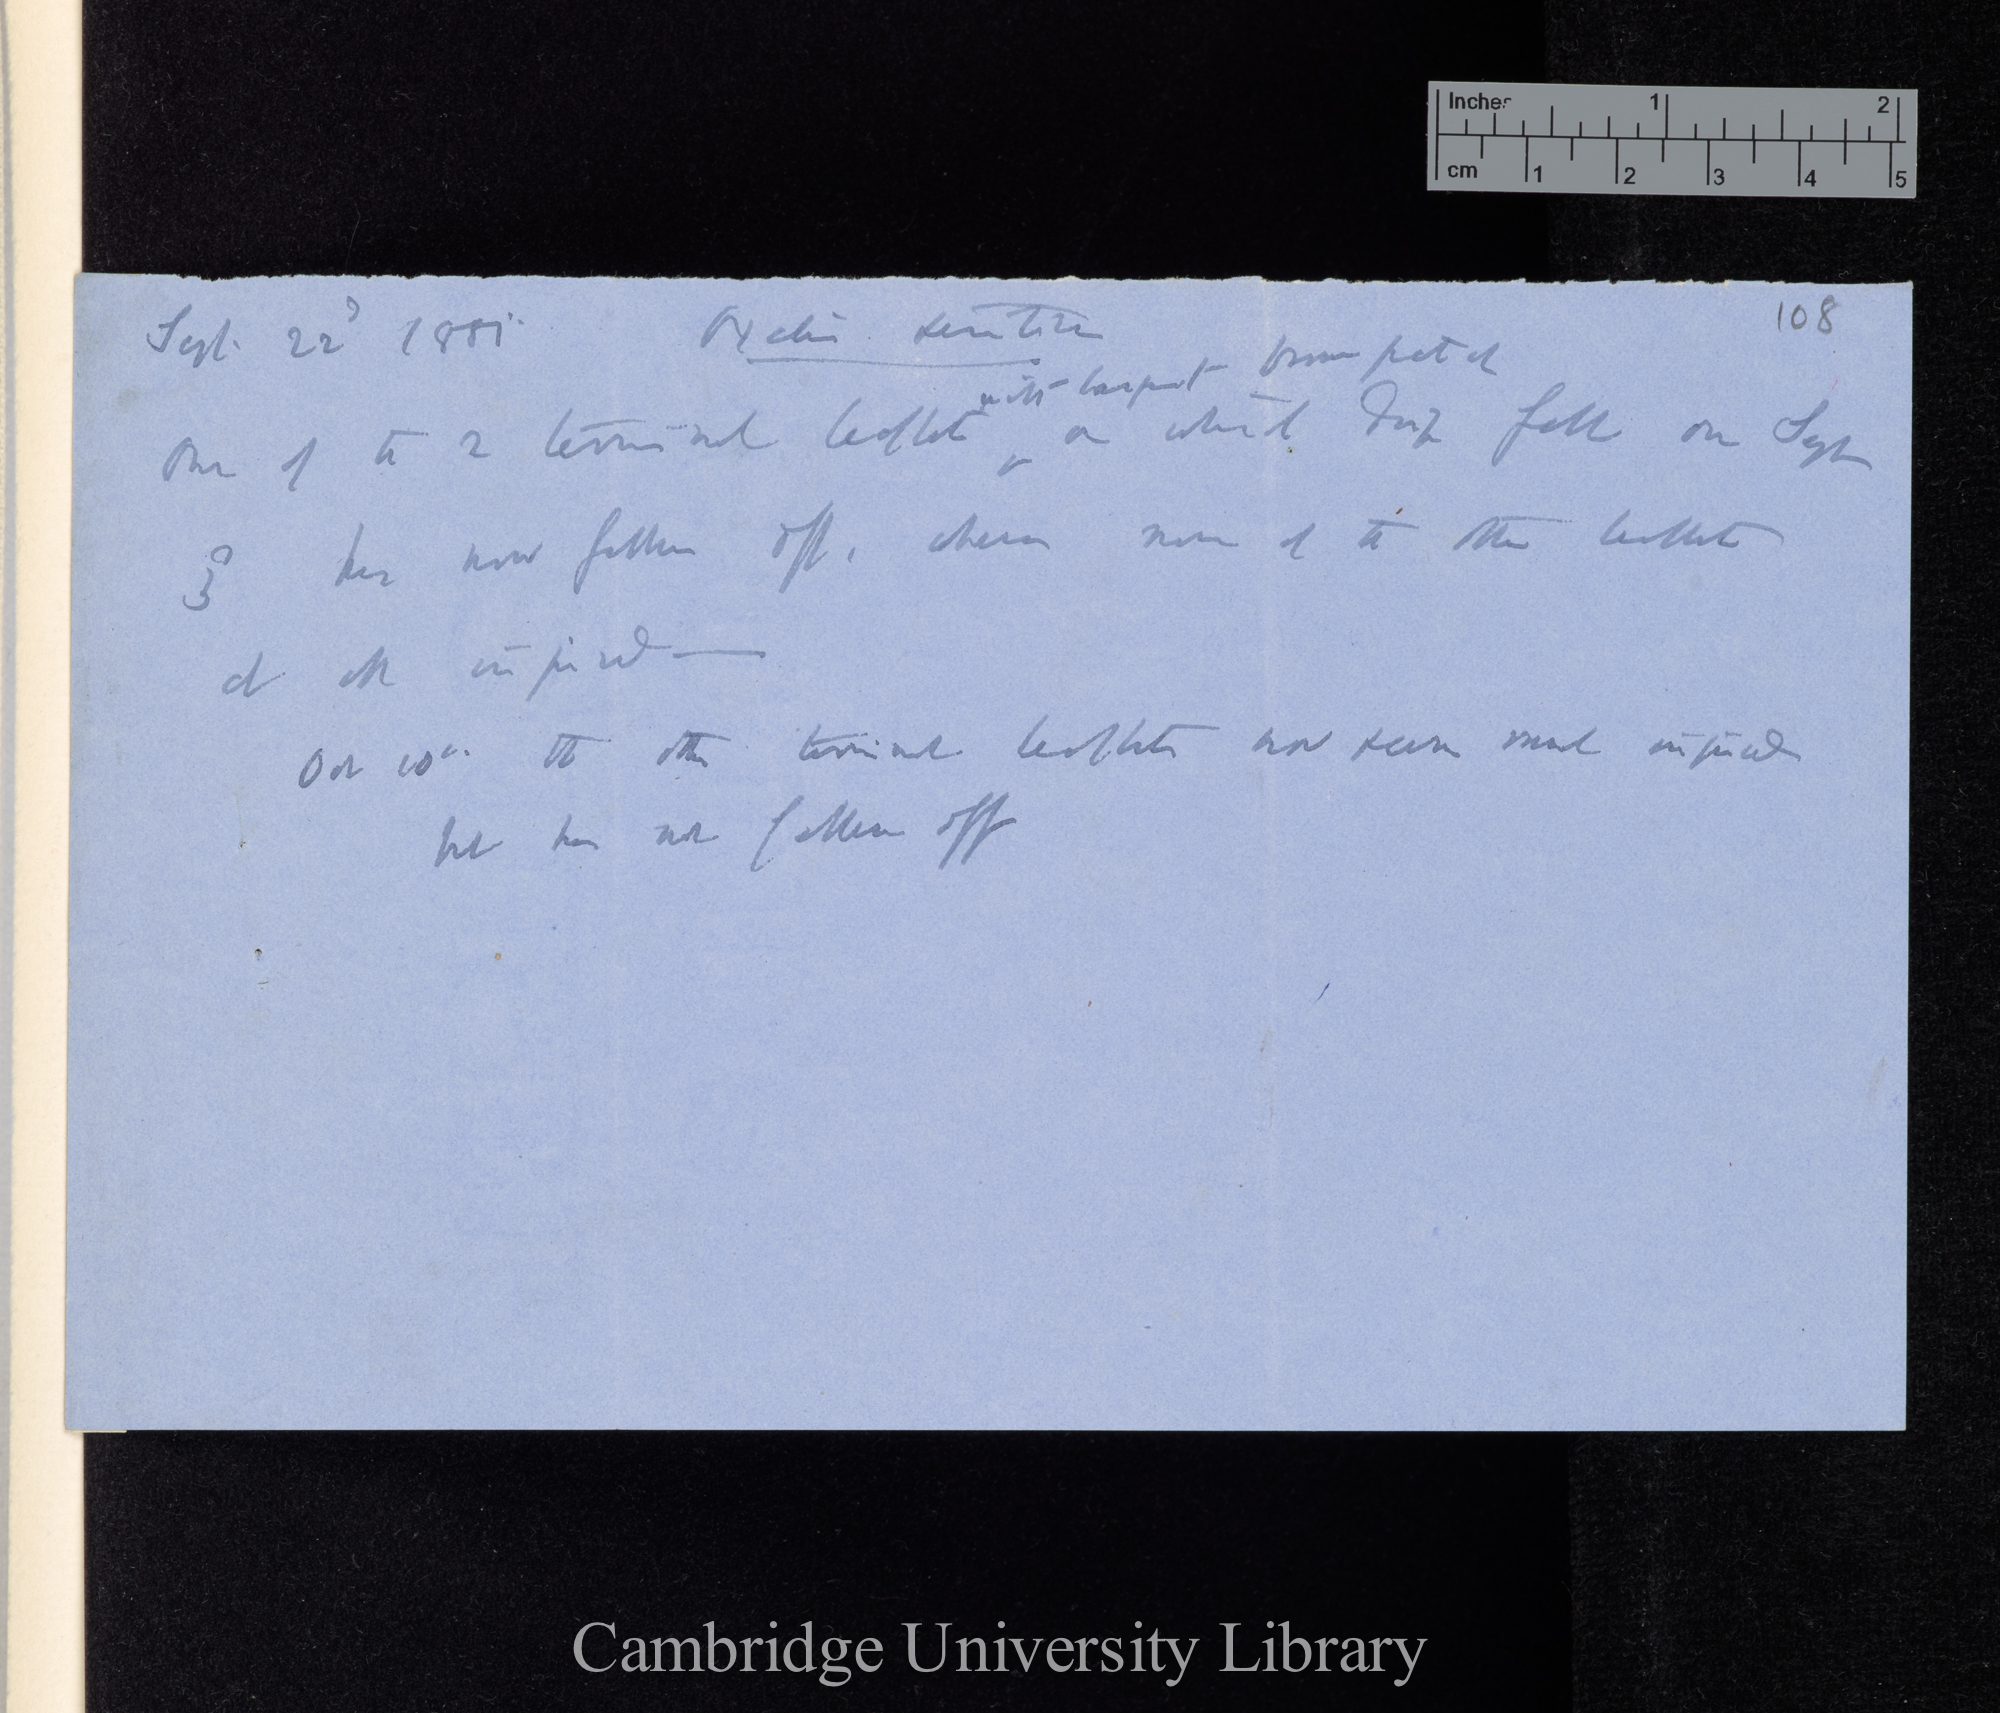 Inches 1 2
cm 1 2 3 4 5
108
Sept. 22d 1881. Oxalis sensitiva
with largest brown patch
One of the 2 terminal leaflets on which drop fell on Sept
3 has now fallen off, whereas none of the other leaflets
at all injured —
Oct 10th. the other terminal leaflets now seem much injured
but has not fallen off
Cambridge University Library